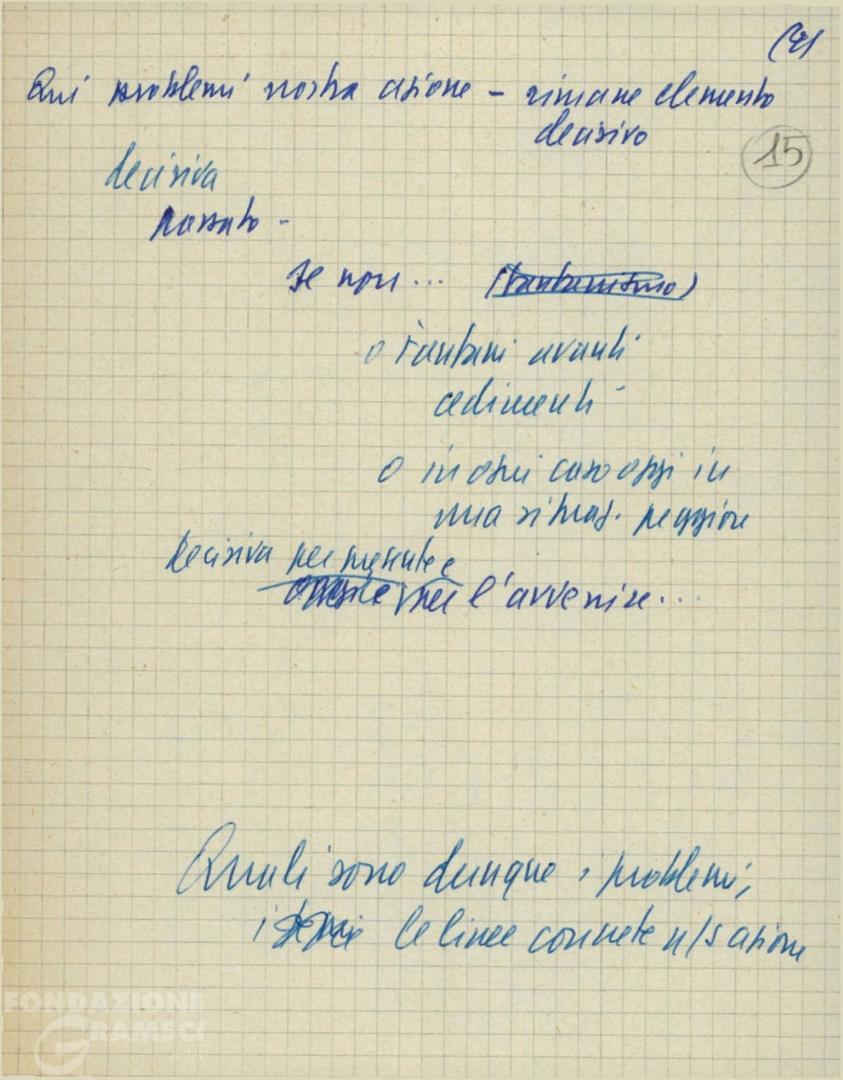 Qui problemi nostra azione – rimane elemento
decisivo
15
decisiva
passato –
se non ... (fanfanismo)
o Fanfani avanti
cedimenti
o in ogni caso oggi in
una situaz. peggiore
Decisiva per presente e
per l'avvenire...
Quali sono dunque i problemi,
i temi e le linee concrete n/s azione
FONDAZIONE
GRAMSCI